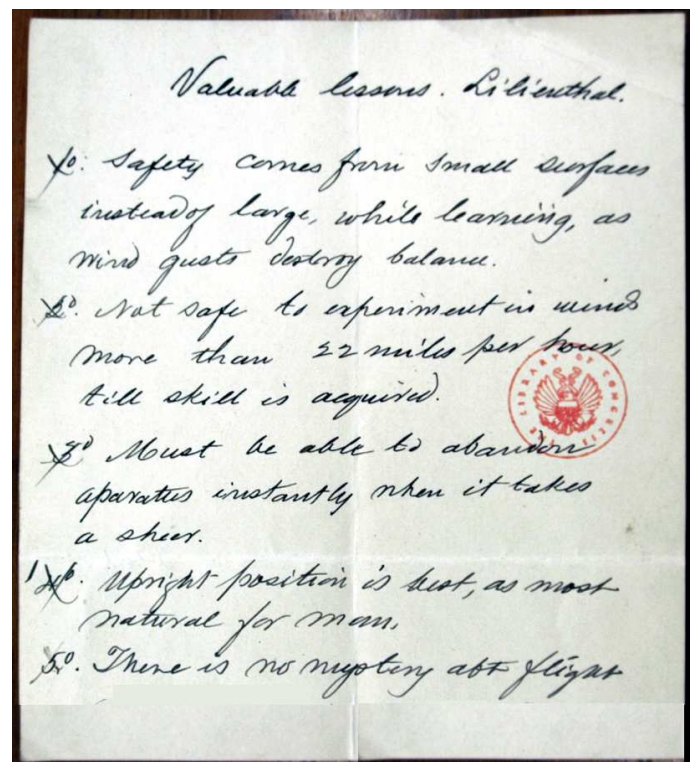 Valuable lessons. Lilienthal.
1o. Safety comes from small surfaces
instead of large, while learning, as
wind gusts destroy balance.
2o. Not safe to experiment in winds
more than 22 miles per hour,
till skill is acquired.
LIBRARY OF CONGRESS
3o Must be able to abandon
aparatus instantly when it takes
a sheer.
1 4o. Upright position is best, as most
natural for man.
5o. There is no mystery abt flight